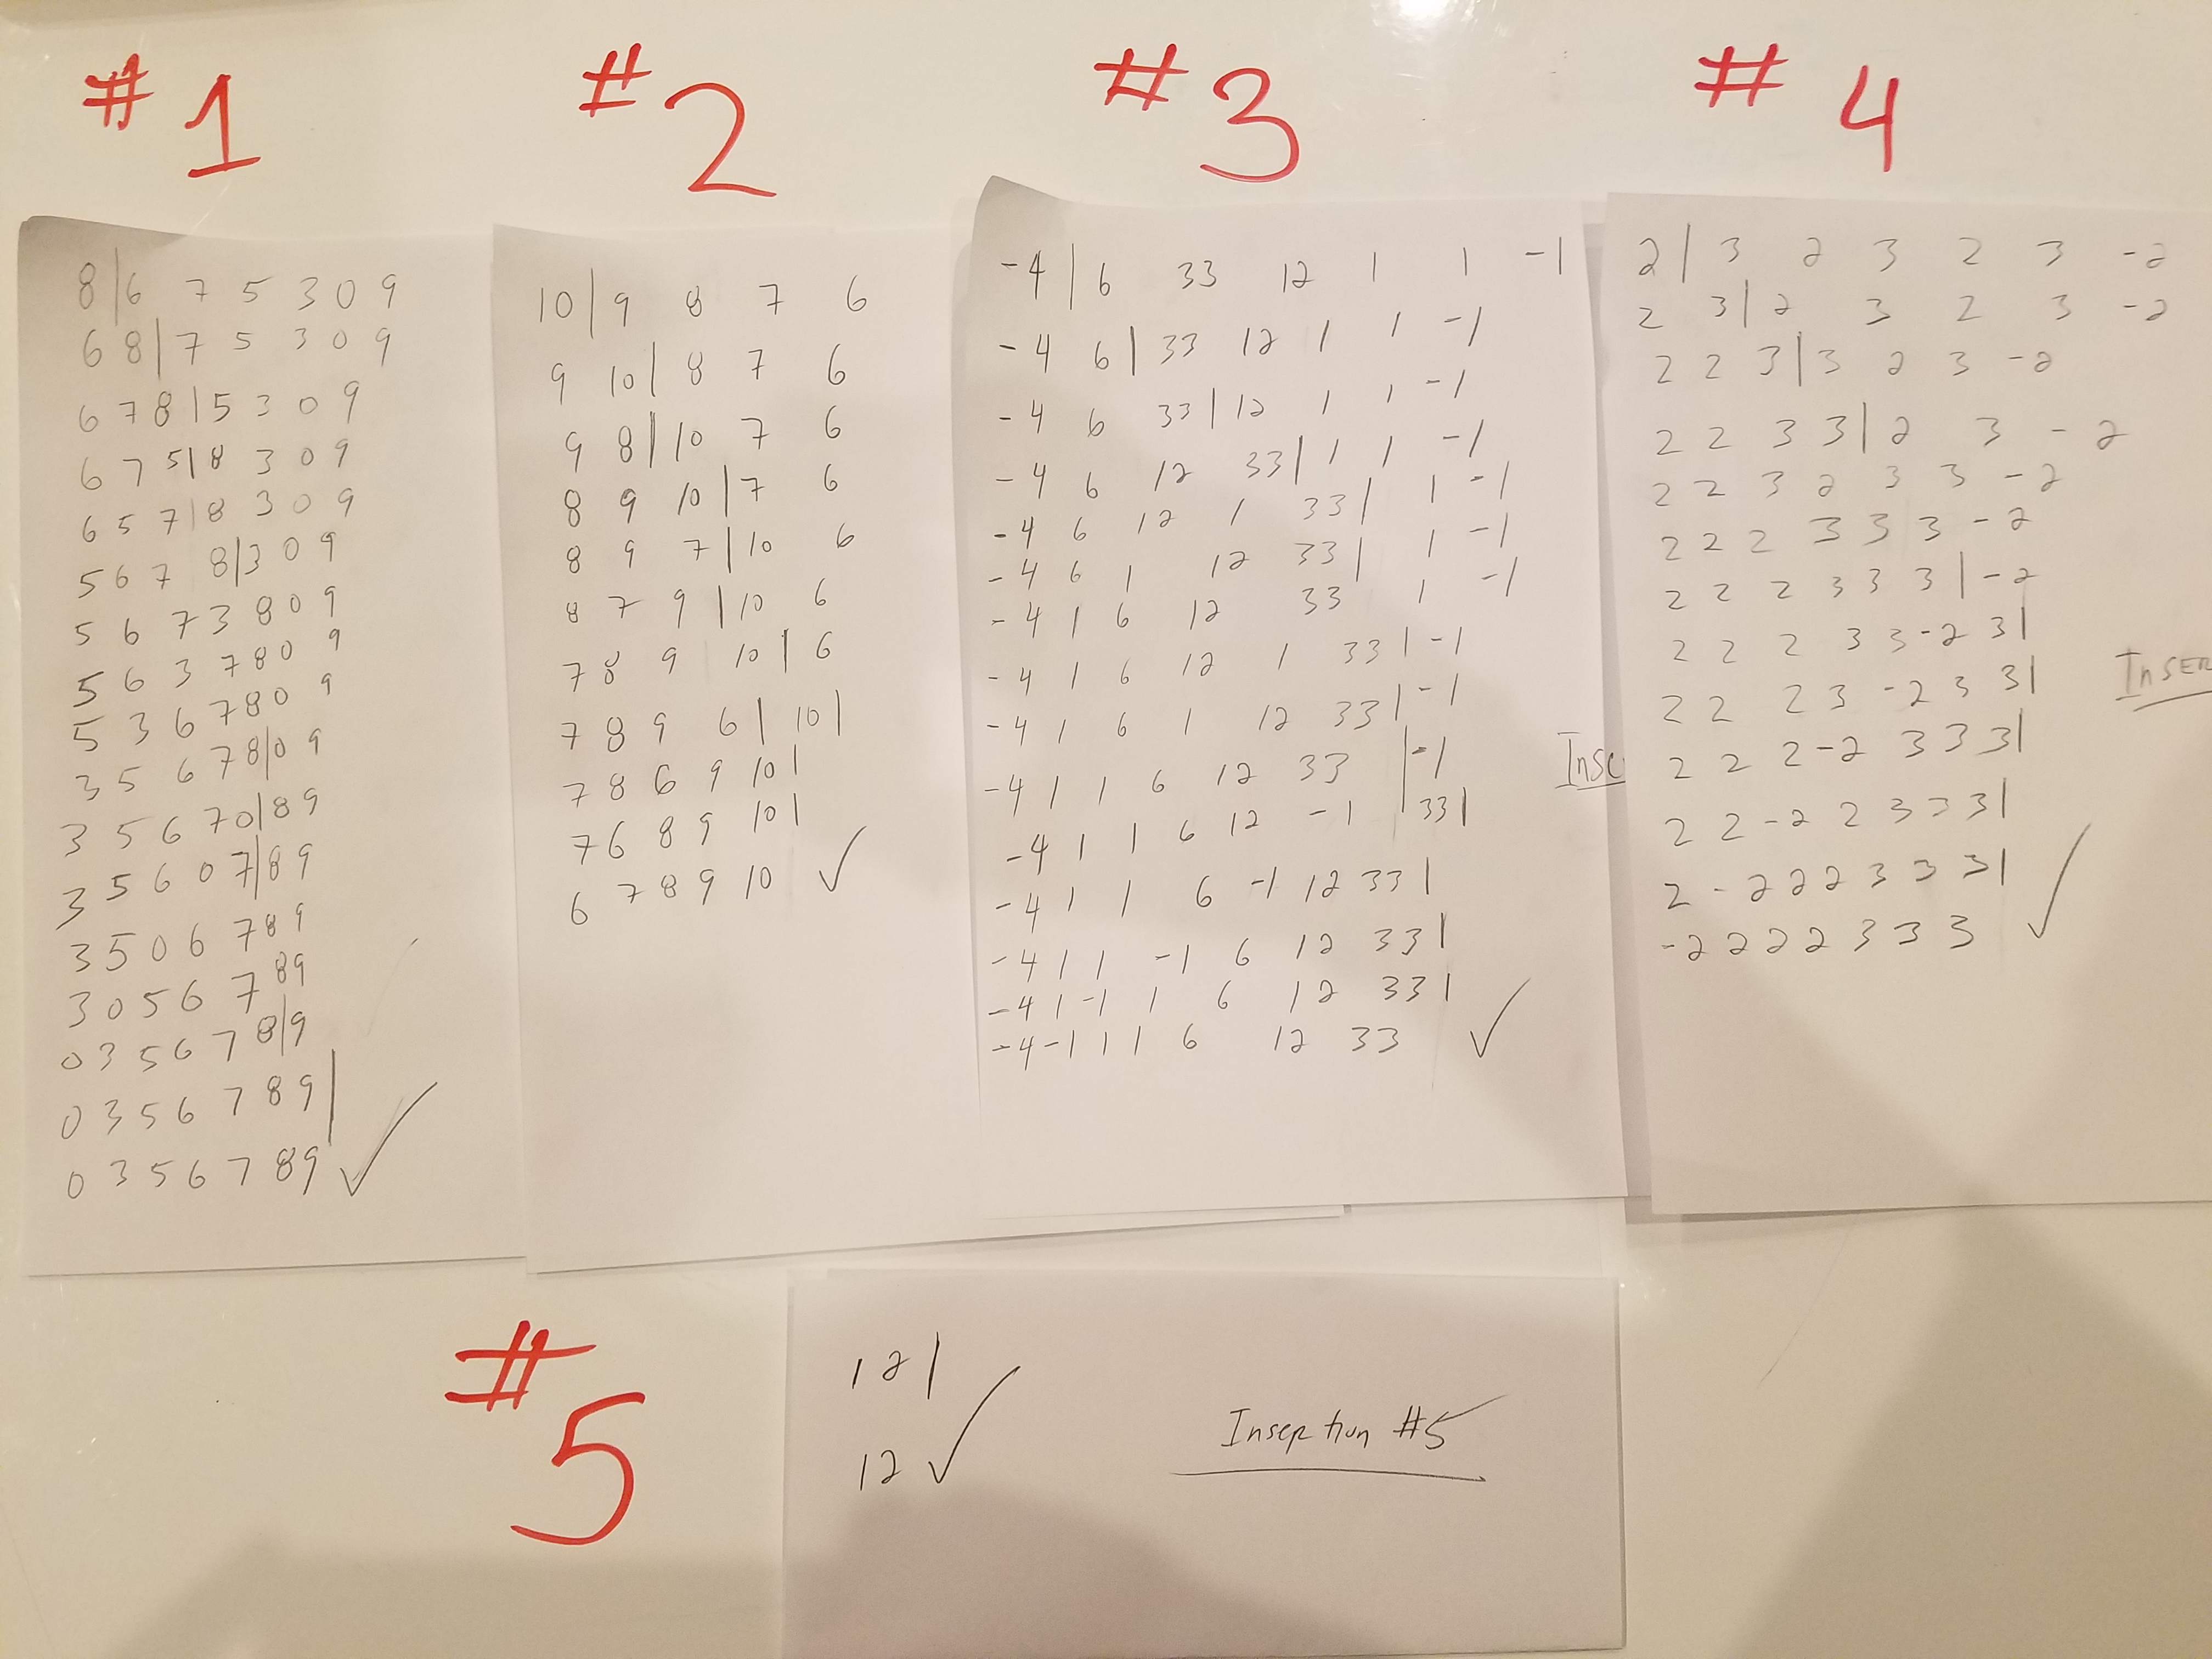 #1
8|6 7 5 3 0 9
6 8|7 5 3 0 9
6 7 8|5 3 0 9
6 7 5|8 3 0 9
6 5 7|8 3 0 9
5 6 7 8|3 0 9
5 6 7 3 8 0 9
5 6 3 7 8 0 9
5 3 6 7 8 0 9
3 5 6 7 8|0 9
3 5 6 7 0|8 9
3 5 6 0 7|8 9
3 5 0 6 7 8 9
3 0 5 6 7 8 9
0 3 5 6 7 8|9
0 3 5 6 7 8 9|
0 3 5 6 7 8 9 ✓
#2
10|9 8 7 6
9 10|8 7 6
9 8|10 7 6
8 9 10|7 6
8 9 7|10 6
8 7 9|10 6
7 8 9 10|6
7 8 9 6|10|
7 8 6 9 10|
7 6 8 9 10|
6 7 8 9 10 ✓
#3
-4|6 33 12 1 1 -1
-4 6|33 12 1 1 -1
-4 6 33|12 1 1 -1
-4 6 12 33|1 1 -1
-4 6 12 1 33|1 -1
-4 6 1 12 33|1 -1
-4 1 6 12 33 1 -1
-4 1 6 12 1 33|-1
-4 1 6 1 12 33|-1
-4 1 1 6 12 33|-1
-4 1 1 6 12 -1|33|
-4 1 1 6 -1 12 33|
-4 1 1 -1 6 12 33|
-4 1 -1 1 6 12 33|
-4 -1 1 1 6 12 33 ✓
#4
2|3 2 3 2 3 -2
2 3|2 3 2 3 -2
2 2 3|3 2 3 -2
2 2 3 3|2 3 -2
2 2 3 2 3 3 -2
2 2 2 3 3 3 -2
2 2 2 3 3 3|-2
2 2 2 3 3 -2 3|
2 2 2 3 -2 3 3|
2 2 2 -2 3 3 3|
2 2 -2 2 3 3 3|
2 -2 2 2 3 3 3|
-2 2 2 2 3 3 3 ✓
#5
12|
12 ✓
Insertion #5